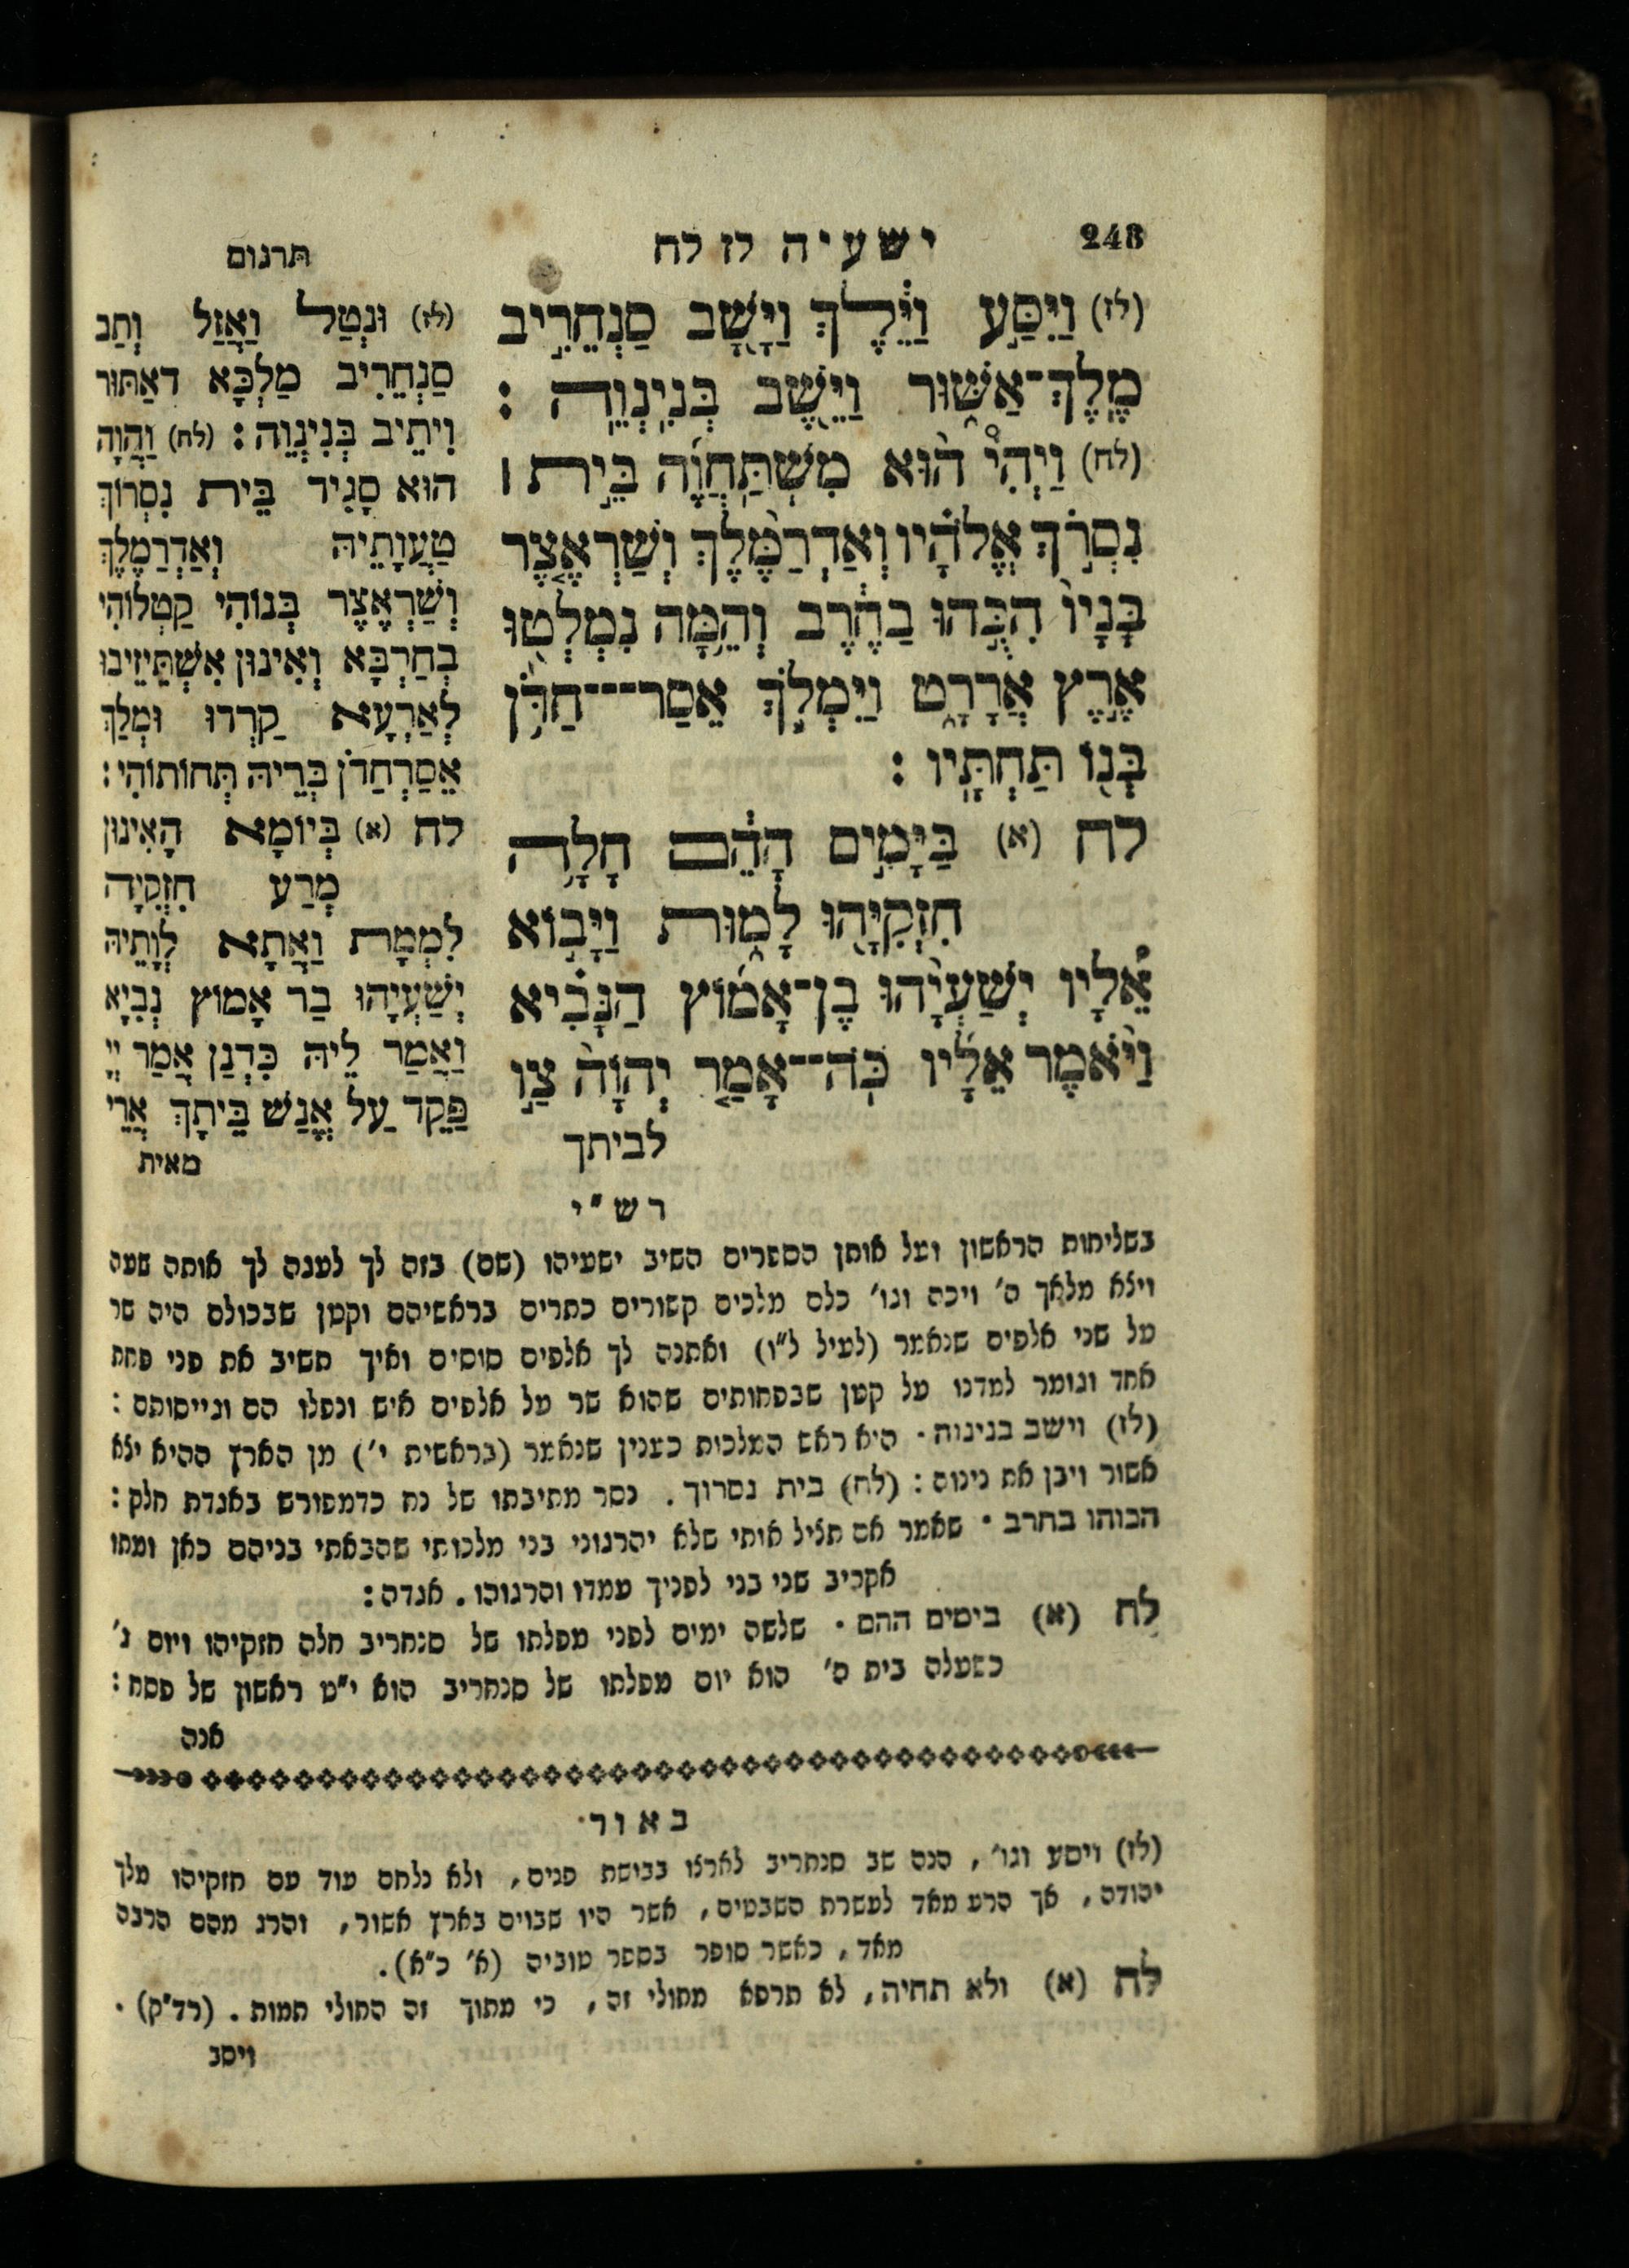 248
ישעיה לז לח
תרגום
(לז) וַיִּסַּ֣ע וַיֵּ֔לֶךְ וַיָּ֖שָׁב סַנְחֵרִ֣יב
מֶֽלֶךְ־אַשּׁ֑וּר וַיֵּ֖שֶׁב בְּנִֽינְוֵֽה :
(לח) וַיְהִי֩ ה֨וּא מִשְׁתַּֽחֲוֶ֜ה בֵּ֣ית ׀
נִסְרֹ֣ךְ אֱלֹהָ֗יו וְאַדְרַמֶּ֨לֶךְ וְשַׁרְאֶ֤צֶר
בָּנָיו֙ הִכֻּ֣הוּ בַחֶ֔רֶב וְהֵ֥מָּה נִמְלְט֖וּ
אֶ֣רֶץ אֲרָרָ֑ט וַיִּמְלֹ֛ךְ אֵסַר־חַדֹּ֥ן
בְּנ֖וֹ תַּחְתָּֽיו :
לח (א) בַּיָּמִ֣ים הָהֵ֔ם חָלָ֥ה
חִזְקִיָּ֖הוּ לָמ֑וּת וַיָּב֣וֹא
אֵ֠לָיו יְשַׁעְיָ֨הוּ בֶן־אָמ֜וֹץ הַנָּבִ֗יא
וַיֹּ֨אמֶר אֵלָ֜יו כֹּֽה־אָמַ֤ר יְהוָה֙ צַ֣ו
לביתך
(לז) וּנְטַל וַאֲזַל וְתַב
סַנְחֵרִיב מַלְכָּא דאַתּוּר
וִיתֵיב בְּנִינְוֵה : (לח) וַהֲוָה
הוּא סָגִיד בֵּית נִסְרוֹךְ
טַעֲוָתֵיהּ וְאַדְרַמֶלֶךְ
וְשַׁרְאֶצֶר בְּנוֹהִי קַטְלוֹהִי
בְחַרְבָּא וְאִינוּן אִשְׁתֵּיזִיבוּ
לְאַרְעָא קַרְדוּ וּמְלַךְ
אֵסַרְחַדֹן בְּרֵיהּ תְּחוֹתוֹהִי :
לח (א) בְּיוֹמָא הָאִינוּן
מְרַע חִזְקִיָה
לִמְמָת וַאֲתָא לְוָתֵיהּ
יְשַׁעְיָהוּ בַר אָמוֹץ נְבִיָא
וַאֲמַר לֵיהּ כִּדְנַן אֲמַר יְיָ
פַּקֵּד עַל אֱנַשׁ בֵּיתָךְ אֲרֵי
מאית
רש״י
בשליחות הראשון ועל אותן הספרים השיב ישעיהו (שם) בזה לך לענה לך אותה שעה
ויצא מלאך ה׳ ויכה וגו׳ כלם מלכים קשורים כתרים בראשיהם וקטן שבכולם היה שר
על שני אלפים שנאמר (לעיל ל״ו) ואתנה לך אלפים סוסים ואיך תשיב את פני פחת
אחד וגומר למדנו על קטן שבפחותים שהוא שר על אלפים איש ונפלו הם וגייסותם :
(לז) וישב בנינוה · היא ראש המלכות כענין שנאמר (בראשית י׳) מן הארץ ההיא יצא
אשור ויבן את נינוה : (לח) בית נסרוך . נסר מתיבתו של נח כדמפורש באגדת חלק :
הכוהו בחרב · שאמר אם תציל אותי שלא יהרגוני בני מלכותי שהבאתי בניהם כאן ומתו
אקריב שני בני לפניך עמדו והרגוהו . אגדה :
לח (א) בימים ההם · שלשה ימים לפני מפלתו של סנחריב חלה חזקיהו ויום ג׳
כשעלה בית ה׳ הוא יום מפלתו של סנחריב הוא י״ט ראשון של פסח :
אנה
באור·
(לז) ויסע וגו׳, הנה שב סנחריב לארצו בבושת פנים, ולא נלחם עוד עם חזקיהו מלך
יהודה, אך הרע מאד לעשרת השבטים, אשר היו שבוים בארץ אשור, והרג מהם הרבה
מאד, כאשר סופר בספר טוביה (א׳ כ״א).
לח (א) ולא תחיה, לא תרפא מחולי זה, כי מתוך זה החולי תמות. (רד״ק) .
ויסב